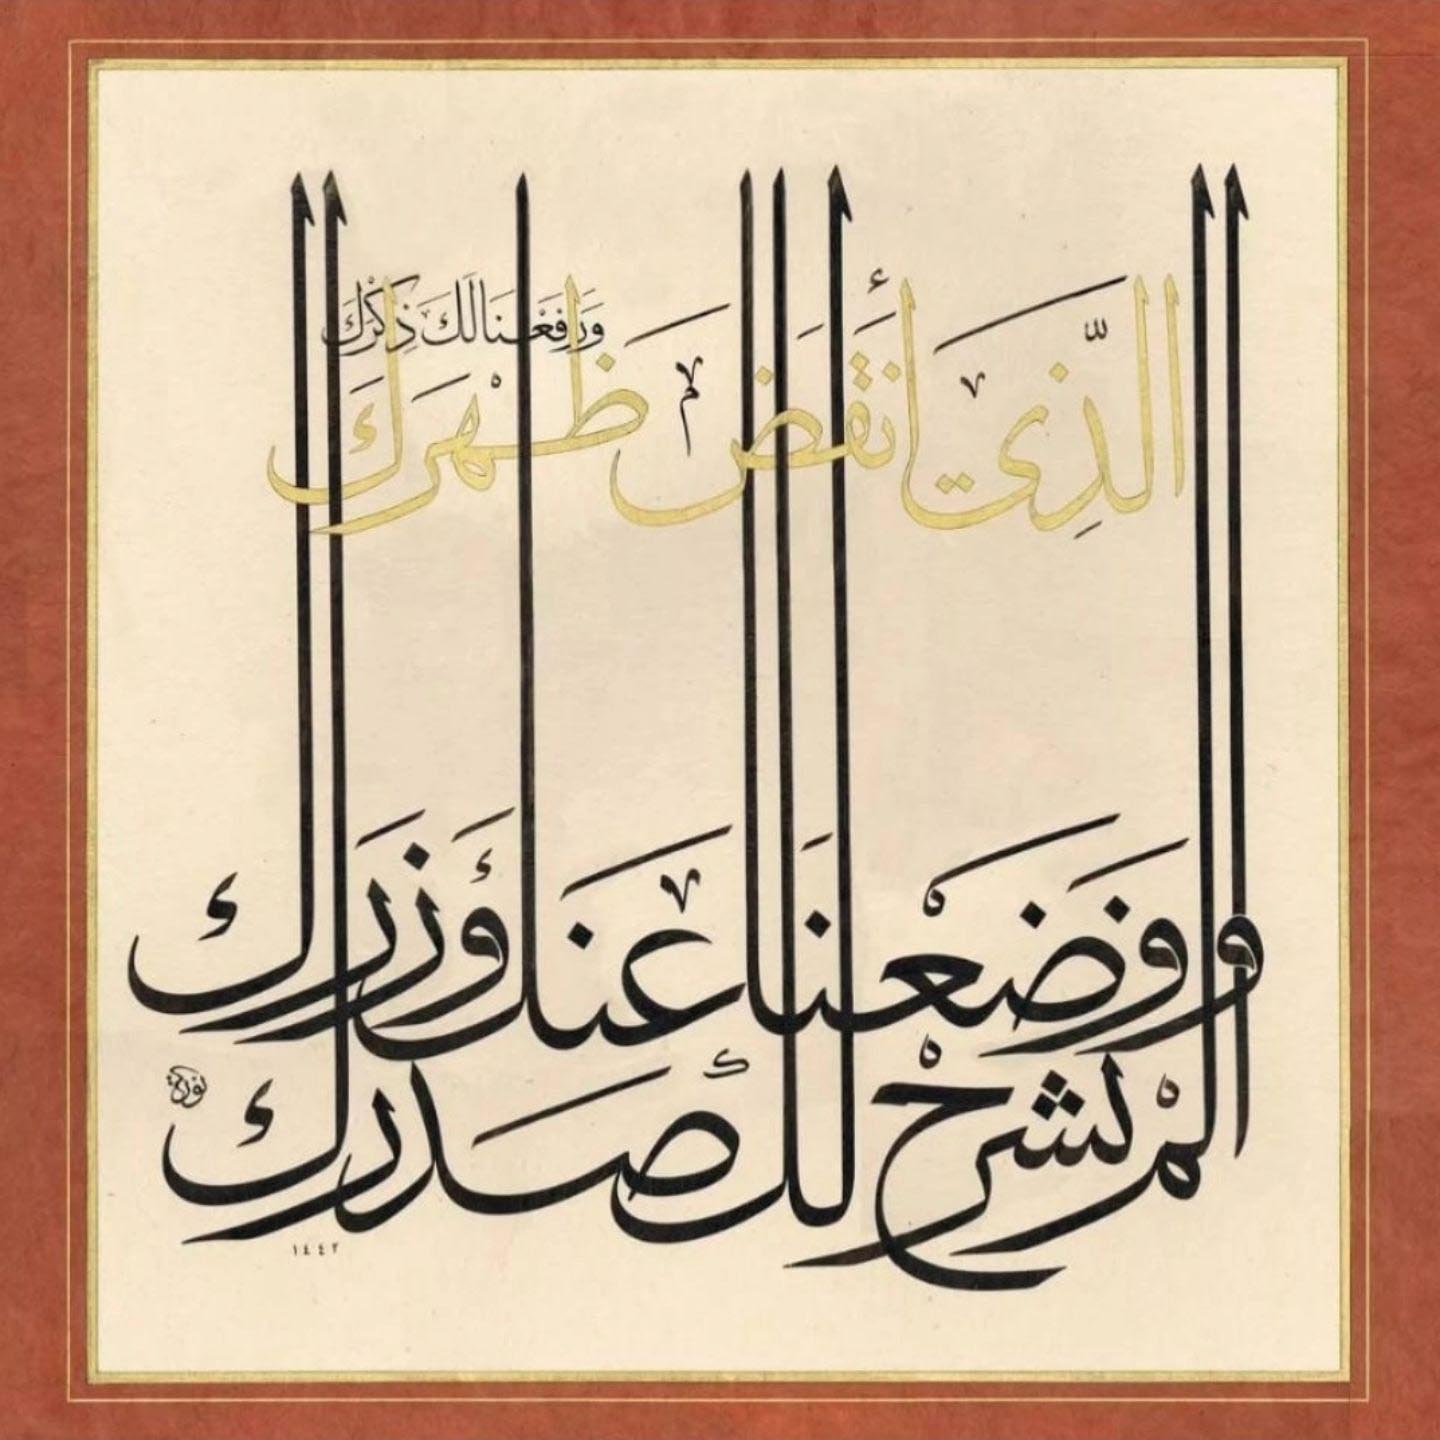 الم نشرح لك صدرك
ووضعنا عنك وزرك
الَّذِي أَنقَضَ ظَهْرَكَ
وَرَفَعْنَا لَكَ ذِكْرَكَ
١٤٤٢